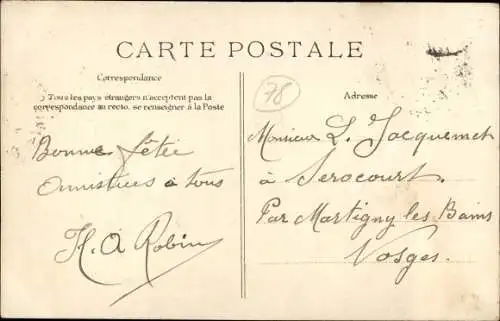 CARTE POSTALE
Correspondance
Tous les pays étrangers n'acceptent pas la
correspondance au recto, se renseigner à la Poste
Bonne fêtée
Amitiées à tous
H. A Robin
78
Adresse
Monsieur L. Jacquemet
à Serocourt.
Par Martigny les Bains
Vosges.